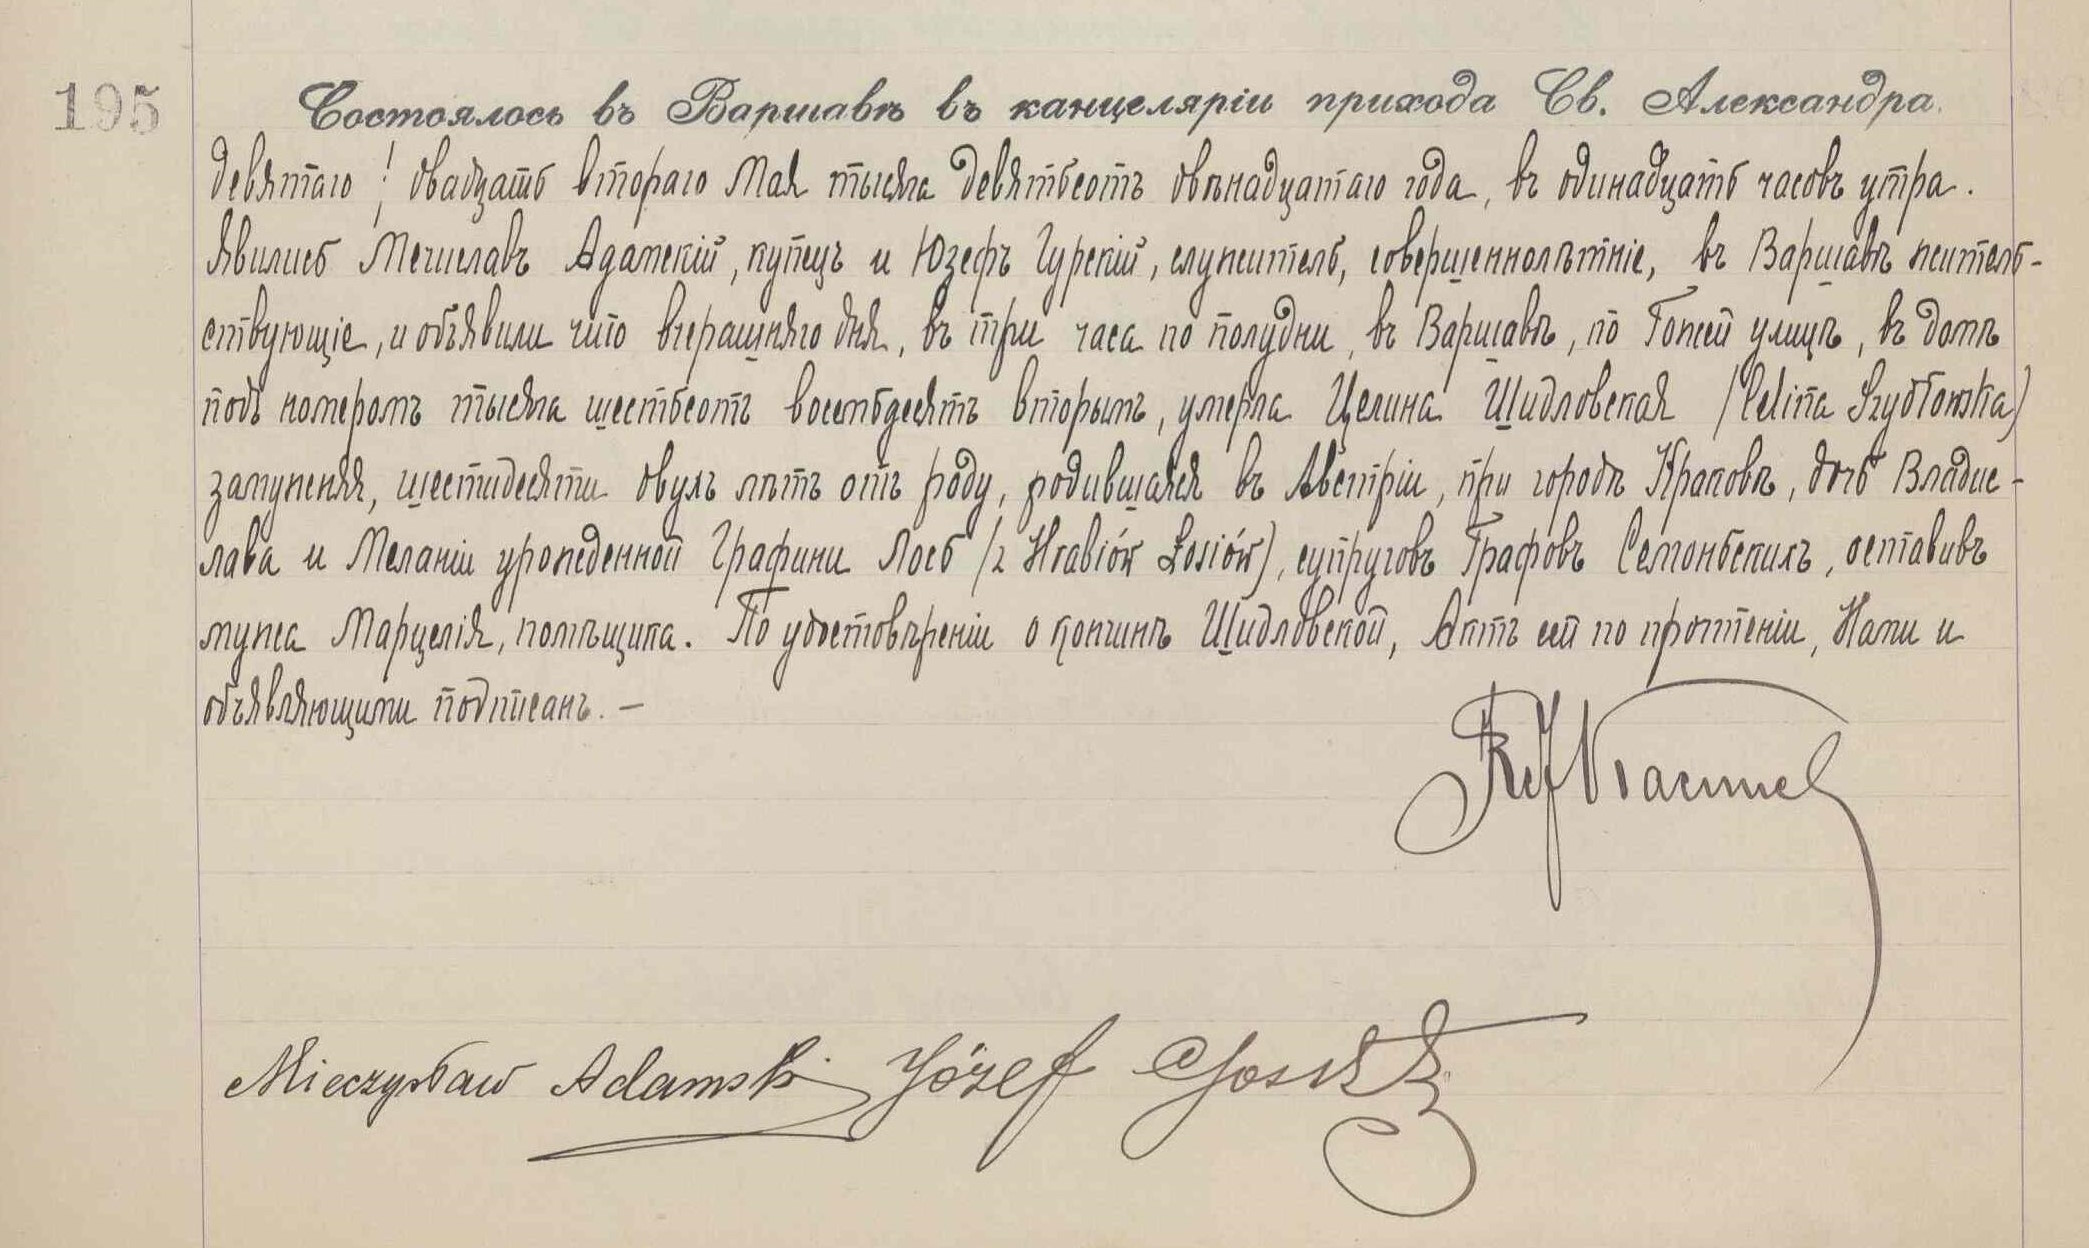 195
Состоялось въ Варшавѣ въ канцеляріи прихода Св. Александра.
девятаго / двадцать втораго Мая тысяча девятьсотъ двѣнадцатаго года, въ одинадцать часовъ утра.
Явились Мечиславъ Адамскій, купецъ и Юзефъ Гурскій, служитель, совершеннолѣтніе, въ Варшавѣ житель-
ствующіе, и объявили что вчерашняго дня, въ три часа по полудни, въ Варшавѣ, по Гожей улицѣ, въ домѣ
подъ номеромъ тысяча шестьсотъ восемьдесятъ вторымъ, умерла Целина Шидловская /Celina Szydłowska/
замужняя, шестидесяти двухъ лѣтъ отъ роду, родившаяся въ Австріи, при городѣ Краковѣ, дочь Владис-
лава и Меланіи урожденной Графини Лось /z Hrabiów Łosiów/, супруговъ Графовъ Семоньскихъ, оставивъ
мужа Марцелія, помѣщика. По удостовѣреніи о кончинѣ Шидловской, Актъ сей по прочтеніи, Нами и
объявляющими подписанъ. —
Mieczysław Adamski Józef Gorski